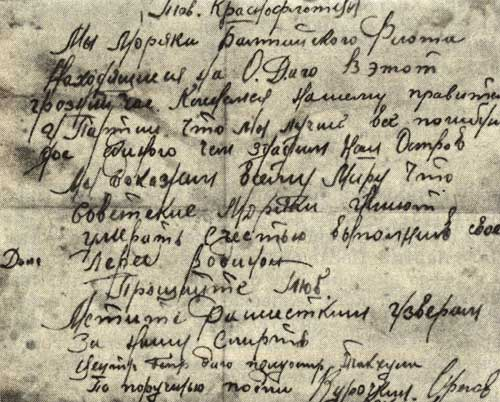 Тов. Краснофлотцы
Мы моряки Балтийского Флота
находящиеся на О. Даго В этот
грозный час. Клянемся нашему правите
и Партии что мы лучше все погибн
до единого чем здадим наш Остров
Мы докажем всему Миру что
советские моряки умеют
умерать с честью выполнив свое
Долг Перед Родиной
Прощайте тов.
Мстите Фашистким изверам
За нашу Смерть
Даго полуостр. Тахкуна
По поручению подпи Курочкин. Орлов